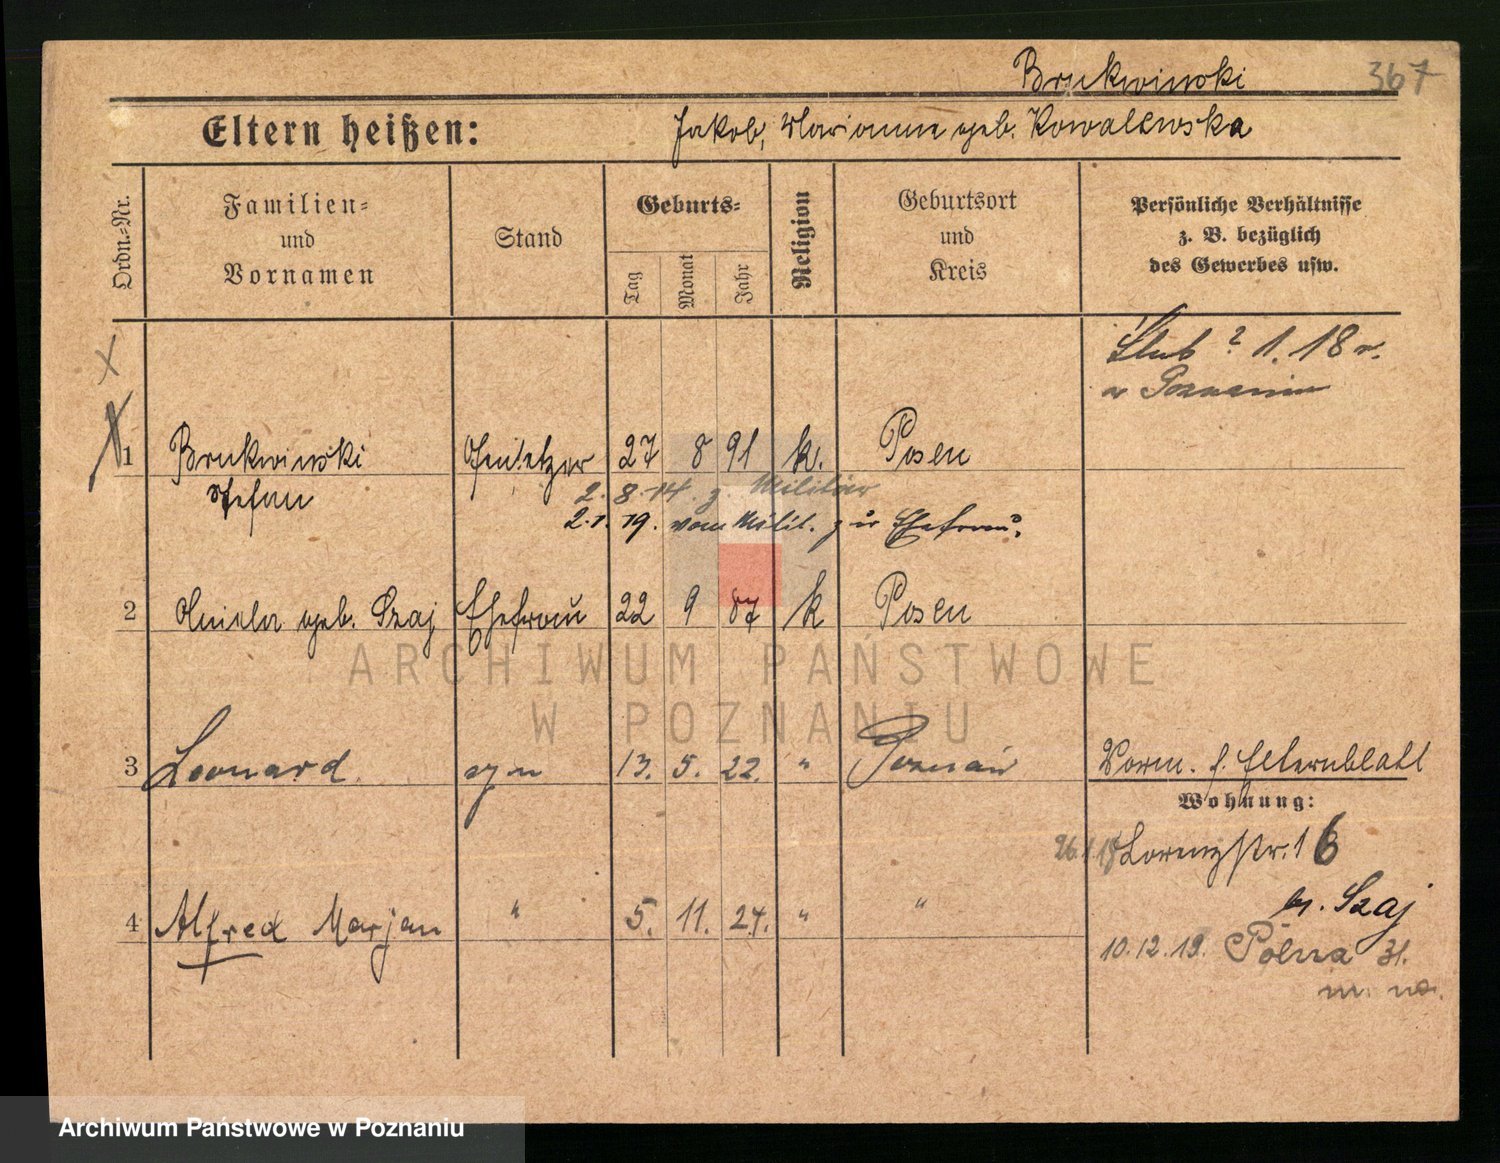 Brukwinski 367
Eltern heißen: Jakob, Marianna geb. Kowalewska
Ordn.-Nr.
Familien-
und
Vornamen
Stand
Geburts-
Tag
Monat
Jahr
Religion
Geburtsort
und
Kreis
Persönliche Verhältnisse
z. B. bezüglich
des Gewerbes usw.
Ślub ? 1. 18 r.
w Poznaniu
1 Brukwinski Ofensetzer 27 8 91 k. Posen
Stefan
2. 8. 14. z. Militär
2. 1. 19. vom Milit. zur Ehefrau.
2 Aniela geb. Szaj Ehefrau 22 9 87 k Posen
ARCHIWUM PAŃSTWOWE
W POZNANIU
3 Leonard syn 13. 5. 22. " Poznań
Verm. s. Elternblatt
Wohnung:
26.1.18 Lorenzstr. 16
b. Szaj
4 Alfred Marjan " 5. 11. 27. " "
10.12.19. Polna 31.
Archiwum Państwowe w Poznaniu